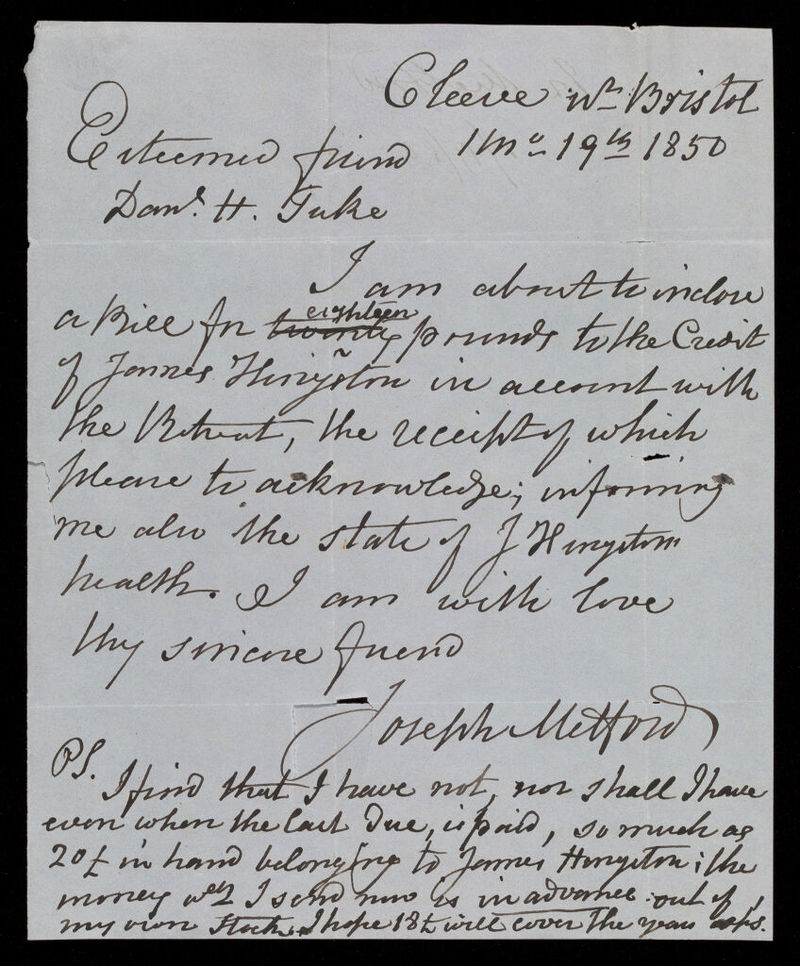 Cleeve nr Bristol
Esteemed friend 1 Mo 19th 1850
Danl. H. Tuke
I am about to inclose
a Bill for twenty eighteen pounds to the Credit
of James Hingston in account with
the Retreat, the receipt of which
please to acknowledge; informing
me also the state of J Hingston
health. I am with love
thy sincere friend
Joseph Metford
PS.
I find that I have not, nor shall I have
even when the last due, is paid, so much as
20£ in hand belonging to James Hingston; the
money wch I send now is in advance out of
my own Stock. I hope 18£ will cover the years